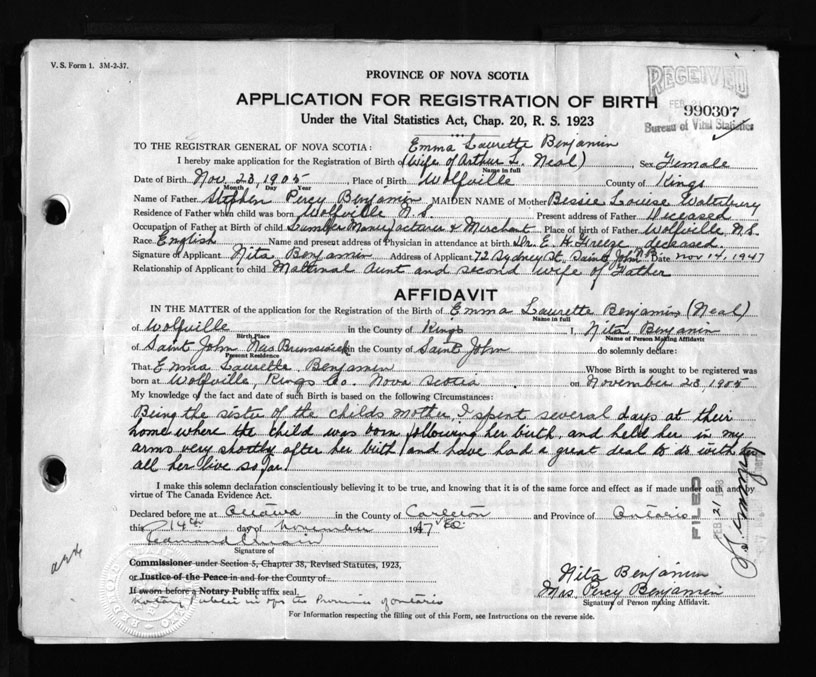 V. S. Form 1. 3M-2-37.
PROVINCE OF NOVA SCOTIA
RECEIVED
FEB
990307
Bureau of Vital Statistics
APPLICATION FOR REGISTRATION OF BIRTH
Under the Vital Statistics Act, Chap. 20, R. S. 1923
TO THE REGISTRAR GENERAL OF NOVA SCOTIA: Emma Laurette Benjamin
I hereby make application for the Registration of Birth of (Wife of Arthur L. Neal) Sex Female
Name in full
Date of Birth Nov. 23, 1905 Place of Birth Wolfville County of Kings
Month Day Year
Name of Father Stephen Percy Benjamin MAIDEN NAME of Mother Bessie Louise Waterbury
Residence of Father when child was born Wolfville N.S. Present address of Father Deceased
Occupation of Father at Birth of child Lumber Manufacturer & Merchant Place of birth of Father Wolfville, N.S.
Race English Name and present address of Physician in attendance at birth Dr. E. H. Freeze, deceased.
Signature of Applicant Nita Benjamin Address of Applicant 72 Sydney St., Saint John N.B. Date Nov 14, 1947
Relationship of Applicant to child Maternal Aunt and second wife of Father
AFFIDAVIT
IN THE MATTER of the application for the Registration of the Birth of Emma Laurette Benjamin (Neal)
Name in full
of Wolfville in the County of Kings I, Nita Benjamin
Birth Place Name of Person Making Affidavit
of Saint John New Brunswick in the County of Saint John do solemnly declare:
Present Residence
That Emma Laurette Benjamin Whose Birth is sought to be registered was
born at Wolfville, Kings Co. Nova Scotia. on November 23, 1905
My knowledge of the fact and date of such Birth is based on the following Circumstances:
Being the sister of the childs mother, I spent several days at their
home where the child was born following her birth, and held her in my
arms very shortly after her birth, and have had a great deal to do with her
all her live so far.
I make this solemn declaration conscientiously believing it to be true, and knowing that it is of the same force and effect as if made under oath and by
virtue of The Canada Evidence Act.
Declared before me at Ottawa in the County of Carleton and Province of Ontario
this 14th day of November 1947
Signature of
Commissioner under Section 5, Chapter 38, Revised Statutes, 1923,
or Justice of the Peace in and for the County of
If sworn before a Notary Public affix seal.
Notary Public in & for the Province of Ontario
Nita Benjamin
Mrs. Percy Benjamin
Signature of Person making Affidavit.
For Information respecting the filling out of this Form, see Instructions on the reverse side.
FILED
FEB 21